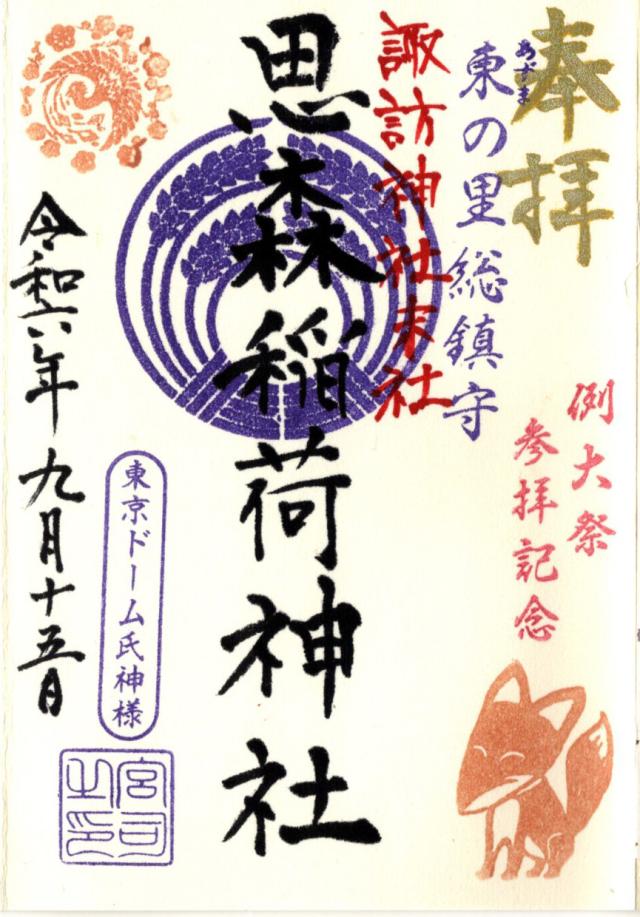 奉拝
例大祭
参拝記念
あづま
東の里総鎮守
諏訪神社末社
思森稲荷神社
東京ドーム氏神様
宮司
之印
令和六年九月十五日